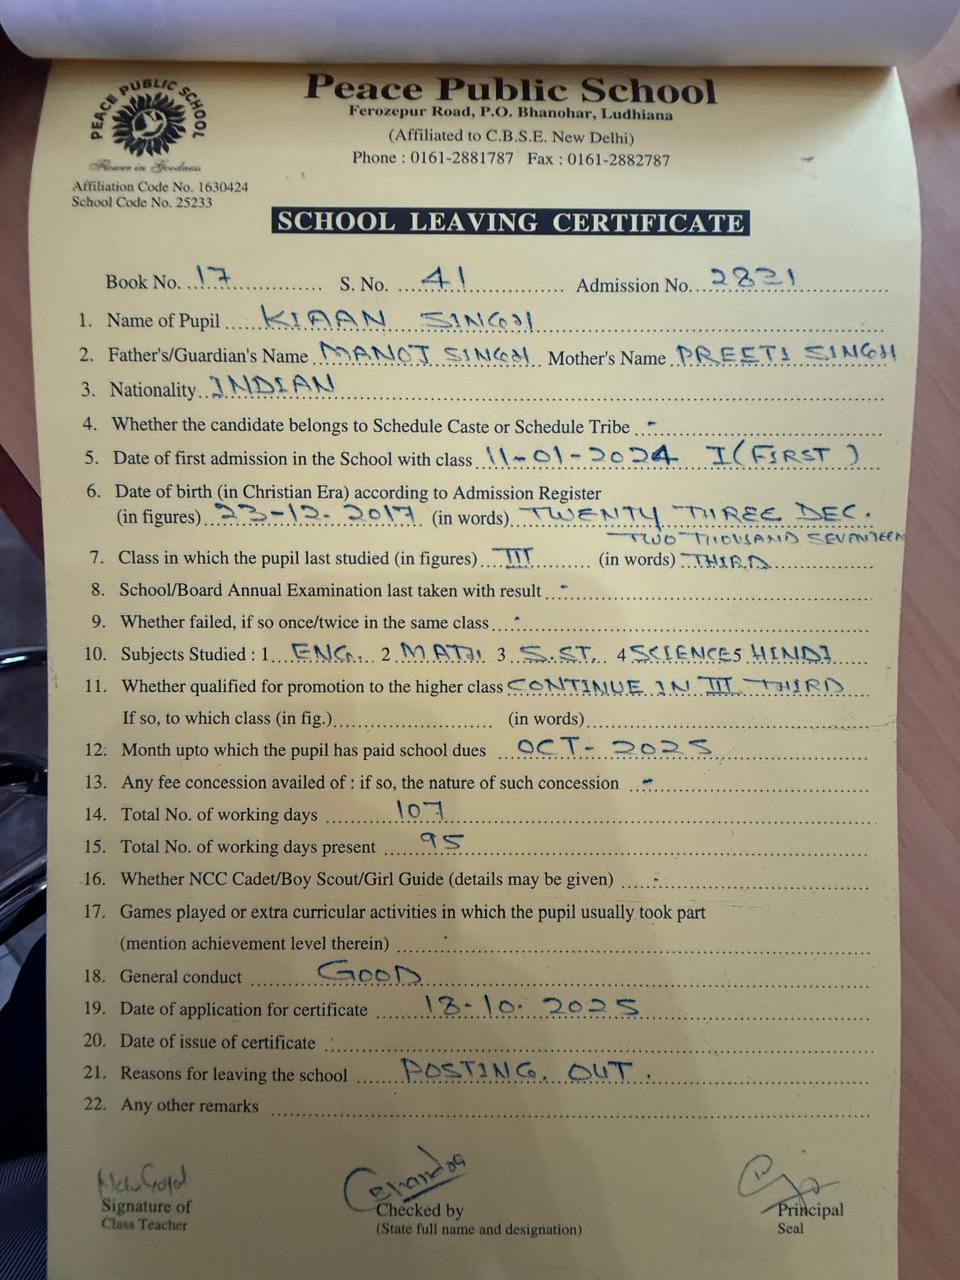 PEACE PUBLIC SCHOOL
Flower in Goodness
Affiliation Code No. 1630424
School Code No. 25233
Peace Public School
Ferozepur Road, P.O. Bhanohar, Ludhiana
(Affiliated to C.B.S.E. New Delhi)
Phone : 0161-2881787 Fax : 0161-2882787
SCHOOL LEAVING CERTIFICATE
Book No. 17 S. No. 41 Admission No. 2831
1. Name of Pupil KIAAN SINGH
2. Father's/Guardian's Name MANOJ SINGH Mother's Name PREETI SINGH
3. Nationality INDIAN
4. Whether the candidate belongs to Schedule Caste or Schedule Tribe -
5. Date of first admission in the School with class 11-01-2024 I (FIRST)
6. Date of birth (in Christian Era) according to Admission Register
(in figures) 23-12-2017 (in words) TWENTY THREE DEC.
TWO THOUSAND SEVANTEEN
7. Class in which the pupil last studied (in figures) III (in words) THIRD
8. School/Board Annual Examination last taken with result -
9. Whether failed, if so once/twice in the same class -
10. Subjects Studied : 1 ENG. 2 MATH 3 S.ST. 4 SCIENCE 5 HINDI
11. Whether qualified for promotion to the higher class CONTINUE IN III THIRD
If so, to which class (in fig.) (in words)
12. Month upto which the pupil has paid school dues OCT- 2025
13. Any fee concession availed of : if so, the nature of such concession -
14. Total No. of working days 107
15. Total No. of working days present 95
16. Whether NCC Cadet/Boy Scout/Girl Guide (details may be given) -
17. Games played or extra curricular activities in which the pupil usually took part
(mention achievement level therein) -
18. General conduct GOOD
19. Date of application for certificate 18-10-2025
20. Date of issue of certificate
21. Reasons for leaving the school POSTING OUT.
22. Any other remarks
Signature of
Class Teacher
Checked by
(State full name and designation)
Principal
Seal